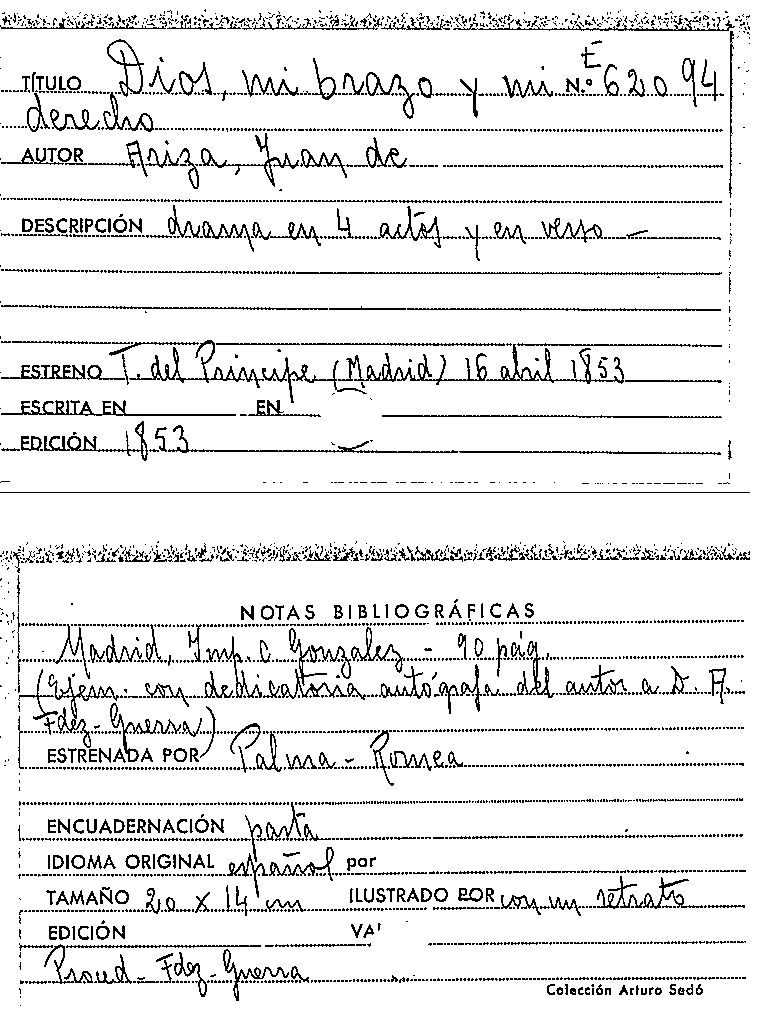 TÍTULO Dios, mi brazo y mi N.º E 62094
derecho
AUTOR Ariza, Juan de
DESCRIPCIÓN drama en 4 actos y en verso —
ESTRENO T. del Príncipe (Madrid) 16 abril 1853
ESCRITA EN EN
EDICIÓN 1853
NOTAS BIBLIOGRÁFICAS
Madrid, Imp. C Gonzalez - 90 pág.
(Ejem. con dedicatoria autógrafa del autor a D. A.
Fdez-Guerra)
ESTRENADA POR Palma - Romea
ENCUADERNACIÓN pasta
IDIOMA ORIGINAL español por
TAMAÑO 20 x 14 cm ILUSTRADO POR con un retrato
EDICIÓN VA
Proced - Fdez-Guerra
Colección Arturo Sedó